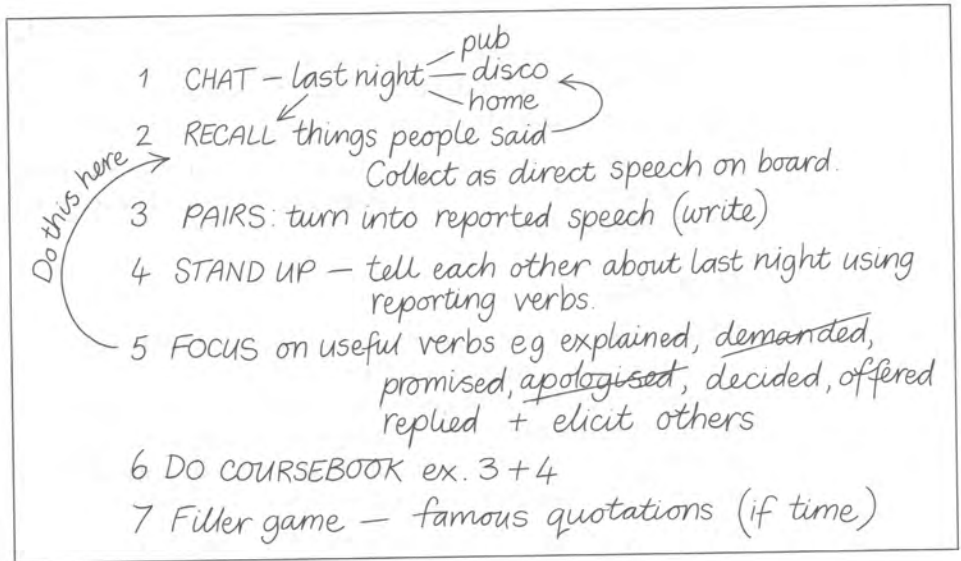 1 CHAT – last night
pub
disco
home
2 RECALL things people said
Collect as direct speech on board.
Do this here
3 PAIRS: turn into reported speech (write)
4 STAND UP – tell each other about last night using
reporting verbs.
5 FOCUS on useful verbs eg explained, demanded,
promised, apologised, decided, offered
replied + elicit others
6 DO COURSEBOOK ex. 3 + 4
7 Filler game – famous quotations (if time)